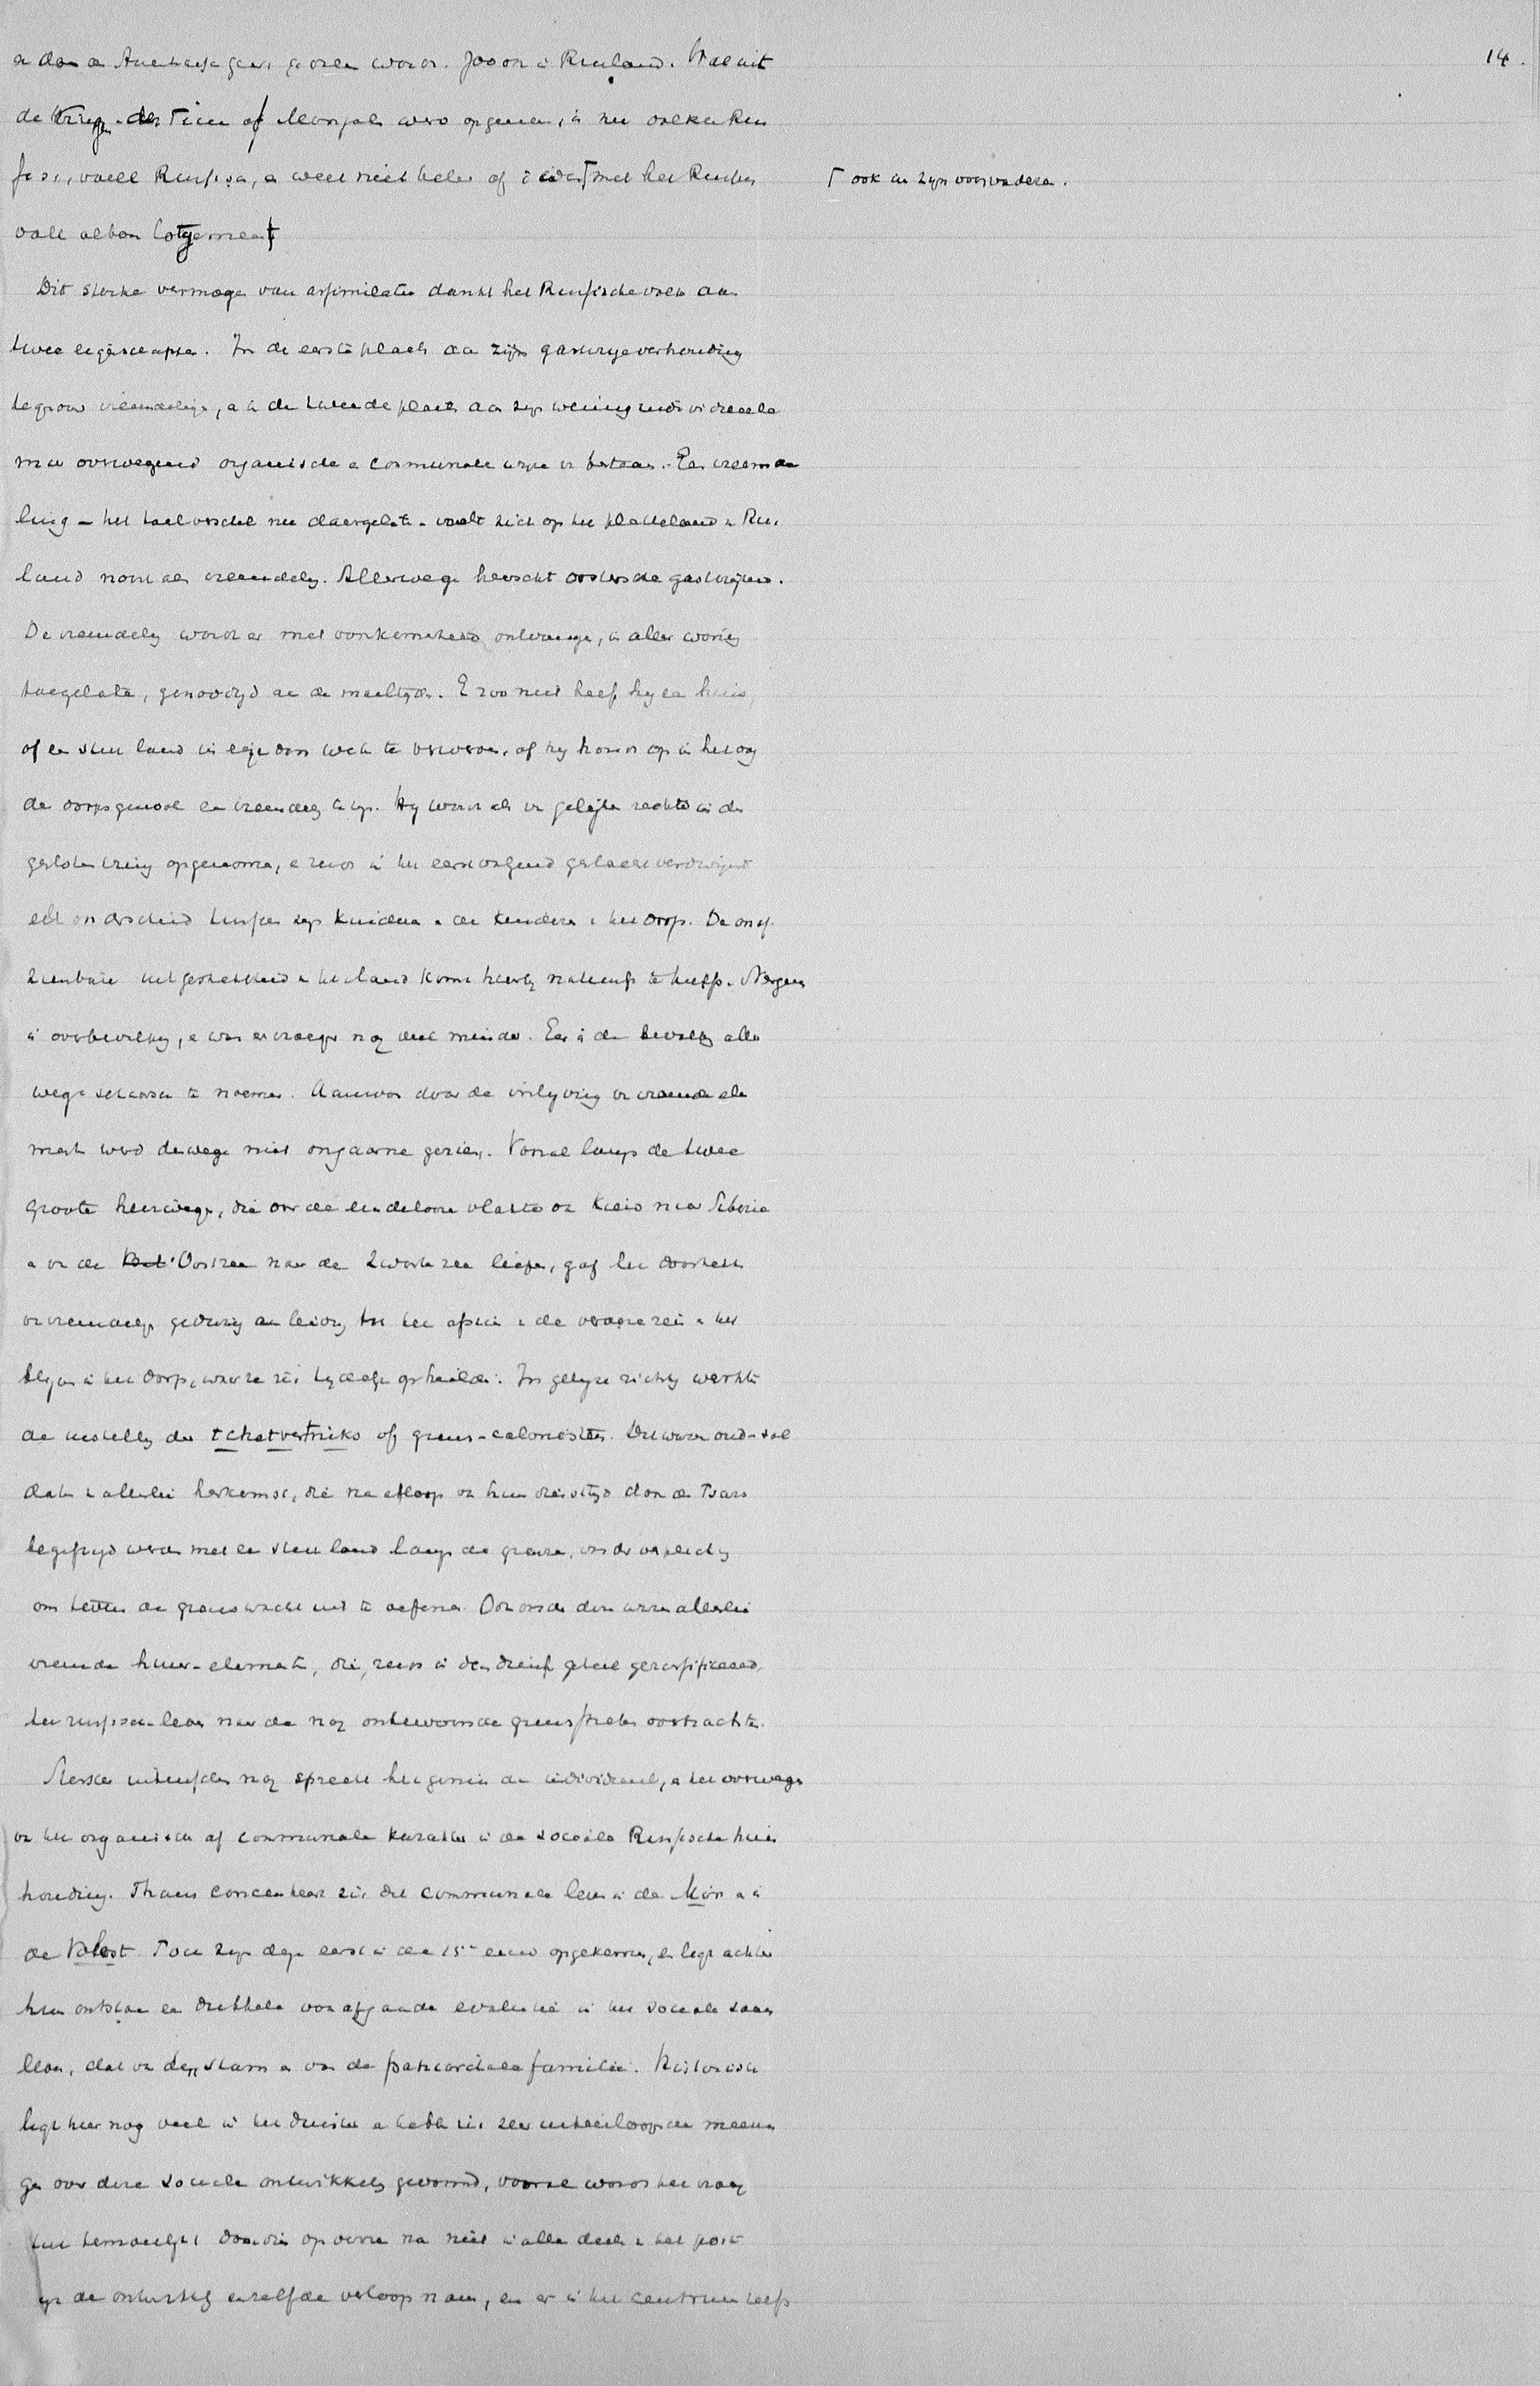 14.
de kringen der Finnen of Mongolen werd opgenomen, is nu
Russisch, en weet niet beter of is met het Russische
Γ ook in zijn voorvaderen.
volk
Dit sterke vermogen van assimilatie dankt het Russische volk aan
twee eigenschappen. In de eerste plaats aan zijn gastvrije verhouding
tegenover vreemdelingen, en in de tweede plaats aan zijn weinig individueele
maar overwegend organische en communale wijze van bestaan. Een vreemde
ling – het taalverschil nu daargelaten – voelt zich op het platteland in Rus
land nooit als vreemdeling. Allerwege heerscht oostersche gastvrijheid.
De vreemdeling wordt er met voorkomendheid ontvangen, in aller woning
toegelaten, genoodigd aan de maaltijden. En zoo niet heeft hij een huis,
of een stuk land in eigendom weten te verwerven, of hij houdt op in het oog
der dorpsgenooten een vreemdeling te zijn. Hij wordt als van gelijke rechten in den
gesloten kring opgenomen, en reeds in het eerstvolgend geslacht verdwijnt
elk onderscheid tusschen zijn kinderen en de kinderen in het dorp. De onaf
zienbare uitgestrektheid van het land komt hierbij te hulp. Nergens
is overbevolking, en was er vroeger nog veel minder. Eer is de bevolking aller
wege schaarsch te noemen. Aanwas door de inlijving van vreemde ele
menten werd deswege niet ongaarne gezien. Vooral langs de twee
groote heirwegen, die over de eindelooze vlakte van Kiev naar Siberië
en van de Oostzee naar de Zwarte zee liepen, gaf het doortrekken
van vreemdelingen gedurig aanleiding tot het afzien van de verdere reis en het
blijven in het dorp, waar ze zich tijdelijk ophielden. In gelijke richting werkte
de instelling der tchetvertniks of grens-colonisten. Dit waren oud-sol
daten van allerlei herkomst, die na afloop van hun diensttijd door de Tsars
begiftigd werden met een stuk land langs de grenzen, onder verplichting
om tevens de grenswacht uit te oefenen. Ook onder dezen waren allerlei
vreemde huur-elementen, die, reeds in den dienst geheel gerussificeerd,
het russische leven naar de nog onbewoonde grensstreken overbrachten.
Sterker intusschen nog spreekt het gemis aan individueel, en het overwegen
van het organisch of communale karakter in de sociale Russische huis
houding. Thans concentreert zich dit communale leven in de Mir en in
de Volost. Toch zijn deze eerst in de 15e eeuw opgekomen, en ligt achter
hun ontstaan een dubbele voorafgaande evolutie in het sociale samen
leven, die van den stam en van de patriarchale familie. Historisch
ligt hier nog veel in het duister en hebben zich zeer uiteenloopende meenin
gen over deze sociale ontwikkeling gevormd, vooral wordt het vraag
stuk bemoeilijkt doordien op verre na niet in alle deelen van het
de ontwikkeling eenzelfde verloop nam, en er in het centrum heeft